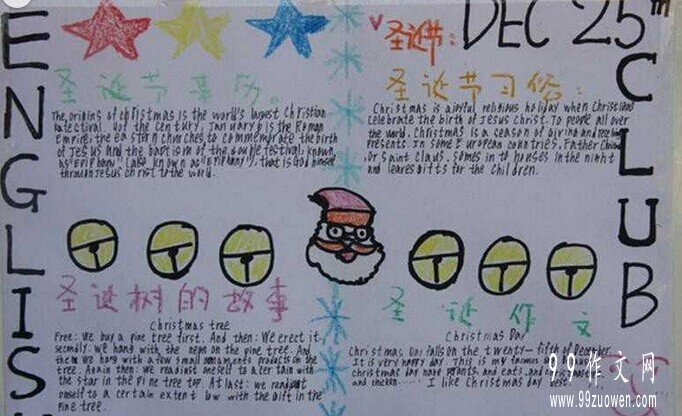 ENGLISH
圣诞节: DEC 25th
CLUB
圣诞节来历。
The origins of christmas is the world's largest christian
of the century, January 6 is the Roman
Empire, the eastern churches, to commemorate the birth
of Jesus and the baptism of the double festival, known
as "epiphany" (also known as "epiphany"), that is God himself
through Jesus christ to the world.
圣诞节习俗:
Christmas is a joyful religious holiday when Christians
celebrate the birth of Jesus Christ. To people all over
the world, Christmas is a season of giving and receiving
presents. In some European countries, Father Christmas,
Or saint Claus, comes in to houses in the night
and leaves gifts for the children.
圣诞树的故事
Christmas tree
Free: We buy a pine tree first. And then: We erect it
secondly: we hang with the neon on the pine tree. And
then we hang with a few small ornaments presents on the
tree. Again then: We readjust oneself to a certain with
the star in the pine tree top. At last: we readjust
oneself to a certain extent low with the gift in the
pine tree.
圣诞作文
Christmas Day
Christmas Day falls on the twenty-fifth of December.
It is very happy day. This is my
christmas day have presents and eats, and
and chicken...... I like Christmas day best!
99作文网
www.99zuowen.com